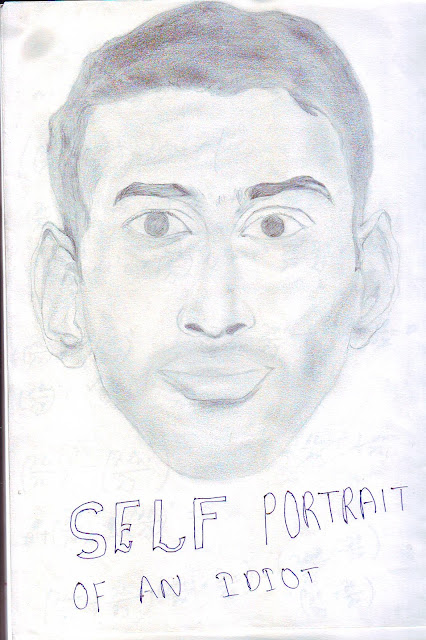 SELF PORTRAIT
OF AN IDIOT